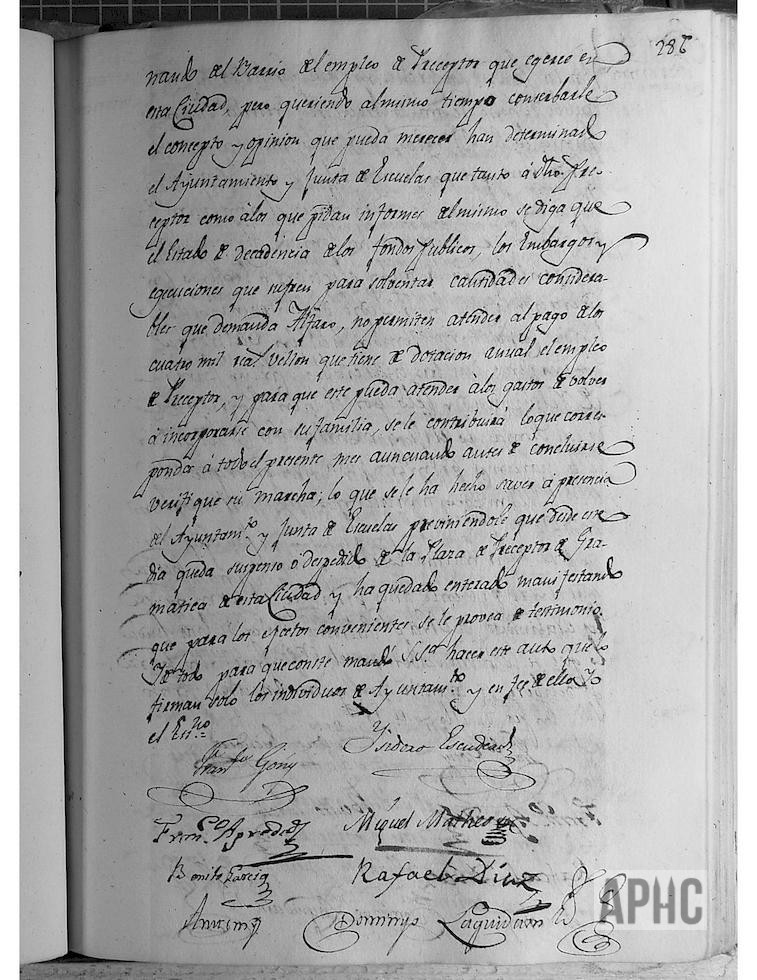 286
nando del Barrio del empleo de Preceptor que egerce en
esta Ciudad, pero queriendo al mismo tiempo conserbarle
el concepto y opinion que pueda merecer han determinado
el Ayuntamiento y Junta de Escuelas que tanto á dho. Pre-
ceptor como à los que pidan informes del mismo se diga que
el Estado de decadencia de los fondos Publicos, los Embargos y
egecuciones que sufren para solventar cantidades considera-
bles que demanda Alfaro, no permiten atender al pago de los
cuatro mil real. vellon que tiene de dotacion anual el empleo
de Preceptor, y para que este pueda atender à los gastos de volver
a incorporarse con su familia, se le contribuirá lo que corres-
ponda à todo el presente mes aun cuando antes de concluirse
verifique su marcha; lo que se le ha hecho saver à presencia
del Ayuntam.to y Junta de Escuelas previniendole que desde este
dia queda suspenso ó despedido de la Plaza de Preceptor de Gra-
matica de esta Ciudad y ha quedado enterado manifestando
que para los efectos convenientes se le provea de testimonio.
Y de todo para que conste mandó S.Sa. hacer este auto que lo
firman solo los individuos de Ayuntam.to y en fee de ello Yo
el Ess.no =
Fran.co Gony
Ysidoro Escudero
Fran.co
Miguel Matheo
Benito Garcia
Rafael Diez
Domingo
APHC